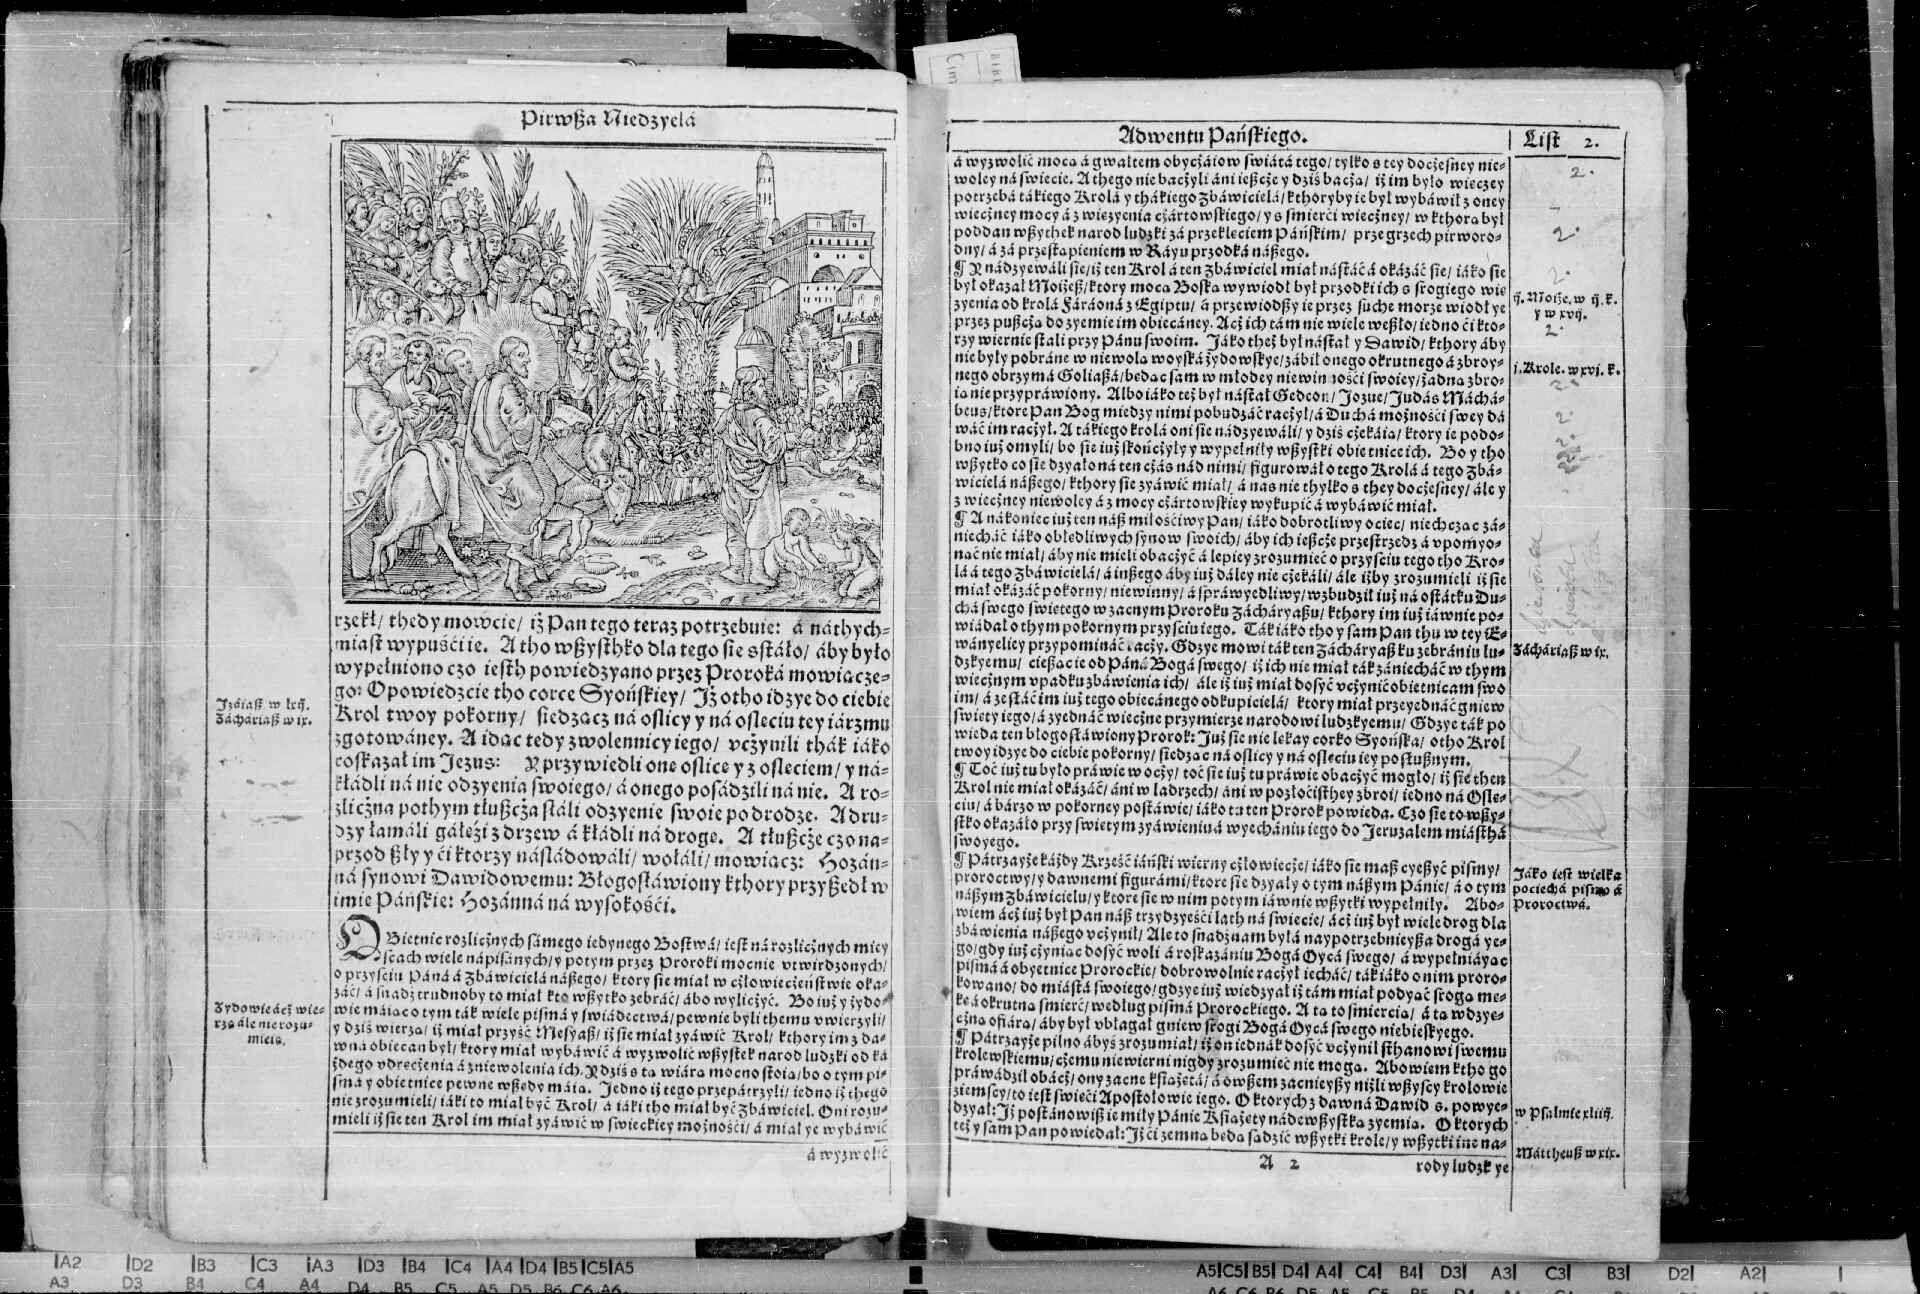 Pirwſza Niedzyelá
rzekł/ thedy mowcie/ iż Pan tego teraz potrzebuie: á náthych⸗
miaſt wypuśći ie. A tho wſzyſthko dla tego ſie sſtáło/ áby było
wypełniono czo ieſth powiedzyano przez Proroká mowiącze⸗
go: Opowiedzcie tho corce Syońſkiey/ Jż otho idzye do ciebie
Krol twoy pokorny/ ſiedzącz ná oſlicy y ná oſlęciu tey iárzmu
zgotowáney. A idąc tedy zwolennicy iego/ vczynili thák iáko
roſkazał im Jezus: Y przywiedli one oſlice y z oſlęciem/ y ná⸗
kłádli ná nie odzyenia ſwoiego/ á onego poſádzili ná nie. A ro⸗
zliczna pothym tłuſzcza ſłáli odzyenie ſwoie po drodze. A dru⸗
dzy łamáli gáłęźi z drzew á kłádli ná drogę. A tłuſzcze czo na⸗
przod ſzły y ći ktorzy náſládowáli/ wołáli/ mowiącz: Hozán⸗
ná ſynowi Dawidowemu: Błogoſłáwiony kthory przyſzedł w
imię Páńſkie: Hozánná ná wyſokośći.
Izáiaſz w lxij.
Záchariaſz w ix.
OBietnic rozlicznych ſámego iedynego Boſtwá/ ieſt ná rozlicznych miey
ſcach wiele nápiſanych/ y potym przez Proroki mocnie vtwirdzonych/
o przyſciu Páná á Zbáwicielá náſzego/ ktory ſie miał w człowieczeńſtwie oka⸗
záć/ á ſnadź trudnoby to miał kto wſzytko zebráć/ ábo wyliczyć. Bo iuż y żydo⸗
wie máiąc o tym ták wiele piſmá y świádectwá/ pewnie byli themu vwierzyli/
y dziś wierzą/ iż miał przyść Meſyaſz/ iż ſie miał zyáwić Krol/ kthory im z da⸗
wná obiecan był/ ktory miał wybáwić á wyzwolić wſzyſtek narod ludzki od ká
żdego vdręczenia á zniewolenia ich. Y dziś s tą wiárą mocno ſtoią/ bo o tym pi⸗
ſmá y obietnice pewne wſzędy máią. Jedno iż tego przepátrzyli/ iedno iż thego
nie zrozumieli/ iáki to miał być Krol/ á iáki tho miał być Zbáwiciel. Oni rozu⸗
mieli iż ſie ten Krol im miał zyáwić w świeckiey możnośći/ á miał ye wybáwić
á wyzwolić
Żydowie ácż wie⸗
rzą ále nie rozu⸗
mieią.
Adwentu Páńſkiego.
Liſt 2.
á wyzwolić mocą á gwałtem obyczáiow świátá tego/ tylko s tey doczeſney nie⸗
woley ná świecie. A thego nie baczyli áni ieſzcże y dziś baczą/ iż im było więczey
potrzebá tákiego Krolá y thákiego Zbáwicielá/ kthoryby ie był wybáwił z oney
wieczney mocy á z więzyenia cżártowſkiego/ y s śmierći wieczney/ w kthorą był
poddan wſzythek narod ludzki zá przeklęciem Páńſkim/ prze grzech pirworo⸗
dny/ á zá przeſtąpieniem w Ráyu przodká náſzego.
¶ Y nádzyewáli ſie/ iż ten Krol á ten Zbáwiciel miał náſtáć á okázáć ſie/ iáko ſie
był okazał Moiżeſz/ ktory mocą Boſką wywiodł był przodki ich s ſrogiego wię
zyenia od krolá Fáráoná z Egiptu/ á przewiodſzy ie przez ſuche morze wiodł ye
przez puſzczą do zyemie im obiecáney. Acż ich tám nie wiele weſzło/ iedno ći kto⸗
rzy wiernie ſtali przy Pánu ſwoim. Jáko theż był náſtał y Dawid/ kthory áby
nie były pobráne w niewolą woyſká żydowſkye/ zábił onego okrutnego á zbroy⸗
nego obrzymá Goliaſzá/ będąc ſam w młodey niewinnośći ſwoiey/ żadną zbro⸗
ią nie przypráwiony. Albo iáko też był náſtał Gedeon/ Jozue/ Judás Máchá⸗
beus/ ktore Pan Bog miedzy nimi pobudzáć raczył/ á Duchá możnośći ſwey dá
wáć im raczył. A tákiego krolá oni ſie nádzyewáli/ y dziś cżekáią/ ktory ie podo⸗
bno iuż omyli/ bo ſie iuż ſkończyły y wypełniły wſzyſtki obietnice ich. Bo y tho
wſzytko co ſie dzyało ná ten cżás nád nimi/ figurowáło tego Krolá á tego Zbá⸗
wicielá náſzego/ kthory ſie zyáwić miał/ á nas nie thylko s they docżeſney/ ále y
z wieczney niewoley á z mocy cżártowſkiey wykupić á wybáwić miał.
¶ A nákoniec iuż ten náſz miłośćiwy Pan/ iáko dobrotliwy ociec/ niechcząc zá⸗
niecháć iáko obłędliwych ſynow ſwoich/ áby ich ieſzcże przeſtrzedz á vpomyo⸗
náć nie miał/ áby nie mieli obaczyć á lepiey zrozumieć o przyſciu tego tho Kro⸗
lá á tego Zbáwicielá/ á inſzego áby iuż dáley nie cżekáli/ ále iżby zrozumieli iż ſie
miał okázáć pokorny/ niewinny/ á ſpráwyedliwy/ wzbudził iuż ná oſtátku Du⸗
chá ſwego świętego w zacnym Proroku Zácháryaſzu/ kthory im iuż iáwnie po⸗
wiádał o thym pokornym przyſciu iego. Ták iáko tho y ſam Pan thu w tey E⸗
wányelicy przypomináć raczy. Gdzye mowi ták ten Zácháryaſz ku zebrániu lu⸗
dzkyemu/ cieſząc ie od Páná Bogá ſwego/ iż ich nie miał ták zániecháć w thym
wiecznym vpadku zbáwienia ich/ ále iż iuż miał doſyć vczynić obietnicam ſwo
im/ á zeſłáć im iuż tego obiecánego odkupicielá/ ktory miał przeyednáć gniew
święty iego/ á zyednáć wieczne przymierze narodowi ludzkyemu/ Gdzye ták po
wieda ten błogoſłáwiony Prorok: Już ſie nie lękay corko Syońſka/ otho Krol
twoy idzye do ciebie pokorny/ ſiedząc ná oſlicy y ná oſlęciu iey poſłuſznym.
¶ Toć iuż tu było práwie w oczy/ toć ſie iuż tu práwie obaczyć mogło/ iż ſie then
Krol nie miał okázáć/ áni w ładrzech/ áni w pozłociſthey zbroi/ iedno ná Oſlę⸗
ciu/ á bárzo w pokorney poſtáwie/ iáko tu ten Prorok powieda. Czo ſie to wſzy⸗
ſtko okazáło przy świętym zyáwieniu á wyechániu iego do Jeruzalem miáſthá
ſwoyego.
¶ Pátrzayże káżdy Krześćiáński wierny człowiecże/ iáko ſie maſz cyeſzyć piſmy/
proroctwy/ y dawnemi figurámi/ ktore ſie dzyały o tym náſzym Pánie/ á o tym
náſzym Zbáwicielu/ y ktore ſie w nim potym iáwnie wſzytki wypełniły. Abo⸗
wiem ácż iuż był Pan náſz trzydzyeśći lath ná świecie/ ácż iuż był wiele drog dla
zbáwienia náſzego vczynił/ Ale to ſnadź nam byłá naypotrzebnieyſza drogá ye⸗
go/ gdy iuż czyniąc doſyć woli á roſkazániu Bogá Oycá ſwego/ á wypełniáyąc
piſmá á obyetnice Prorockie/ dobrowolnie raczył iecháć/ ták iáko o nim proro⸗
kowano/ do miáſtá ſwoiego/ gdzye iuż wiedzyał iż tám miał podyąć ſrogą mę⸗
kę á okrutną śmierć/ według piſmá Prorockiego. A tą to śmiercią/ á tą wdzyę⸗
czną ofiárą/ áby był vbłagał gniew ſrogi Bogá Oycá ſwego niebieſkyego.
¶ Pátrzayże pilno ábyś zrozumiał/ iż on iednák doſyć vczynił ſthanowi ſwemu
krolewſkiemu/ cżemu niewierni nigdy zrozumieć nie mogą. Abowiem ktho go
prowádził obácż/ ony zacne kſiążętá/ á owſzem zacnieyſzy niżli wſzyſcy krolowie
ziemſcy/ to ieſt święći Apoſtołowie iego. O ktorych z dawná Dawid s. powye⸗
dzyał: Jż poſtánowiſz ie miły Pánie Kſiążęty náde wſzyſtką zyemią. O ktorych
też y ſam Pan powiedał: Jż ći zemną będą ſądzić wſzytki krole/ y wſzytki ine na⸗
A 2
rody ludzkye
2.
2.
2.
ij. Moiże. w ij. k.
y w xvij.
2.
j. Krole. w xvj. k.
2.
2.
Záchariaſz w ix.
Jáko ieſt wielka
pociechá piſmo á
Proroctwá.
w Pſalmie xliiij.
Mattheuſz w xix.